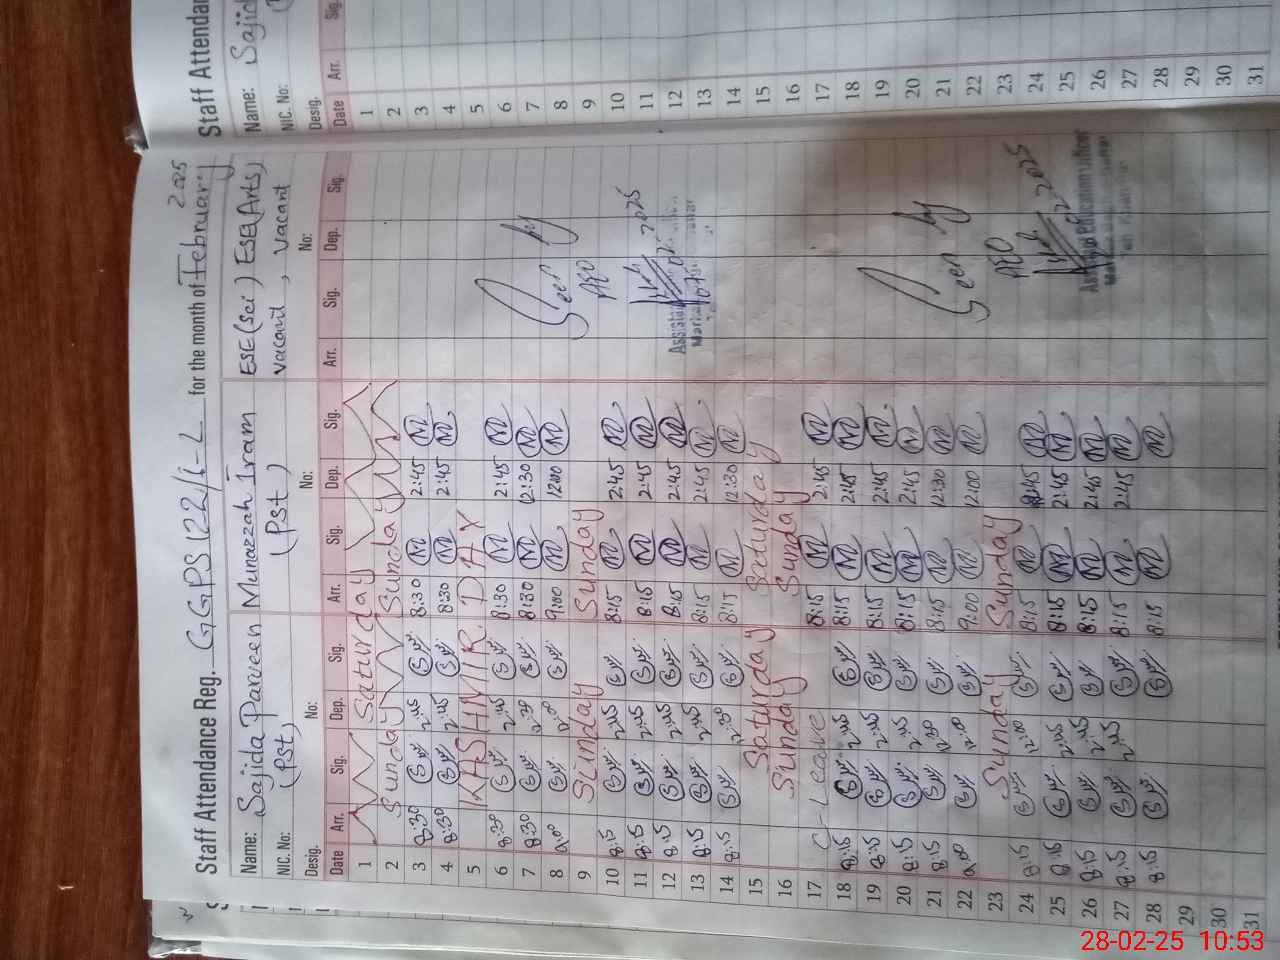 Staff Attendance Reg. GGPS 122/1-L for the month of February 2025
Name: Sajida Parveen Munazzah Iram ESE(Sci) ESE(Arts)
(Pst) (Pst) vacant, vacant
NIC. No: No: No: No:
Desig.
Date Arr. Sig. Dep. Sig. Arr. Sig. Dep. Sig. Arr. Sig. Dep. Sig.
1 Saturday
2 Sunday Sunday
3 8:30 2:45 8:30 2:45
4 8:30 2:45 8:30 2:45
5 KASHMIR DAY
6 8:30 2:45 8:30 2:45
7 8:30 12:30 8:30 12:30
8 9:00 12:00 9:00 12:00
9 Sunday Sunday
10 8:15 2:45 8:15 2:45
11 8:15 2:45 8:15 2:45
12 8:15 2:45 8:15 2:45
13 8:15 2:45 8:15 2:45
14 8:15 12:30 8:15 12:30
15 Saturday Saturday
16 Sunday Sunday
17 C-Leave 8:15 2:45
18 8:15 2:45 8:15 2:45
19 8:15 2:45 8:15 2:45
20 8:15 2:45 8:15 2:45
21 8:15 12:30 8:15 12:30
22 9:00 12:00 9:00 12:00
23 Sunday Sunday
24 8:15 12:00 8:15 2:45
25 8:15 2:45 8:15 2:45
26 8:15 2:45 8:15 2:45
27 8:15 2:45 8:15 2:45
28 8:15 8:15
29
30
31
Seen by
AEO
2025
Seen by
AEO
2025
Assistant Education Officer
Staff Attendan
Name: Sajid
NIC. No:
Desig.
Date Arr. Sig.
1
2
3
4
5
6
7
8
9
10
11
12
13
14
15
16
17
18
19
20
21
22
23
24
25
26
27
28
29
30
31
28-02-25 10:53